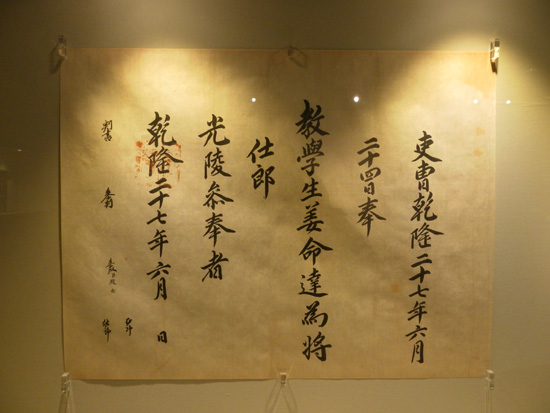 吏曹乾隆二十七年六月
二十四日奉
教學生姜命達為將
仕郎
光陵叅奉者
乾隆二十七年六月 日